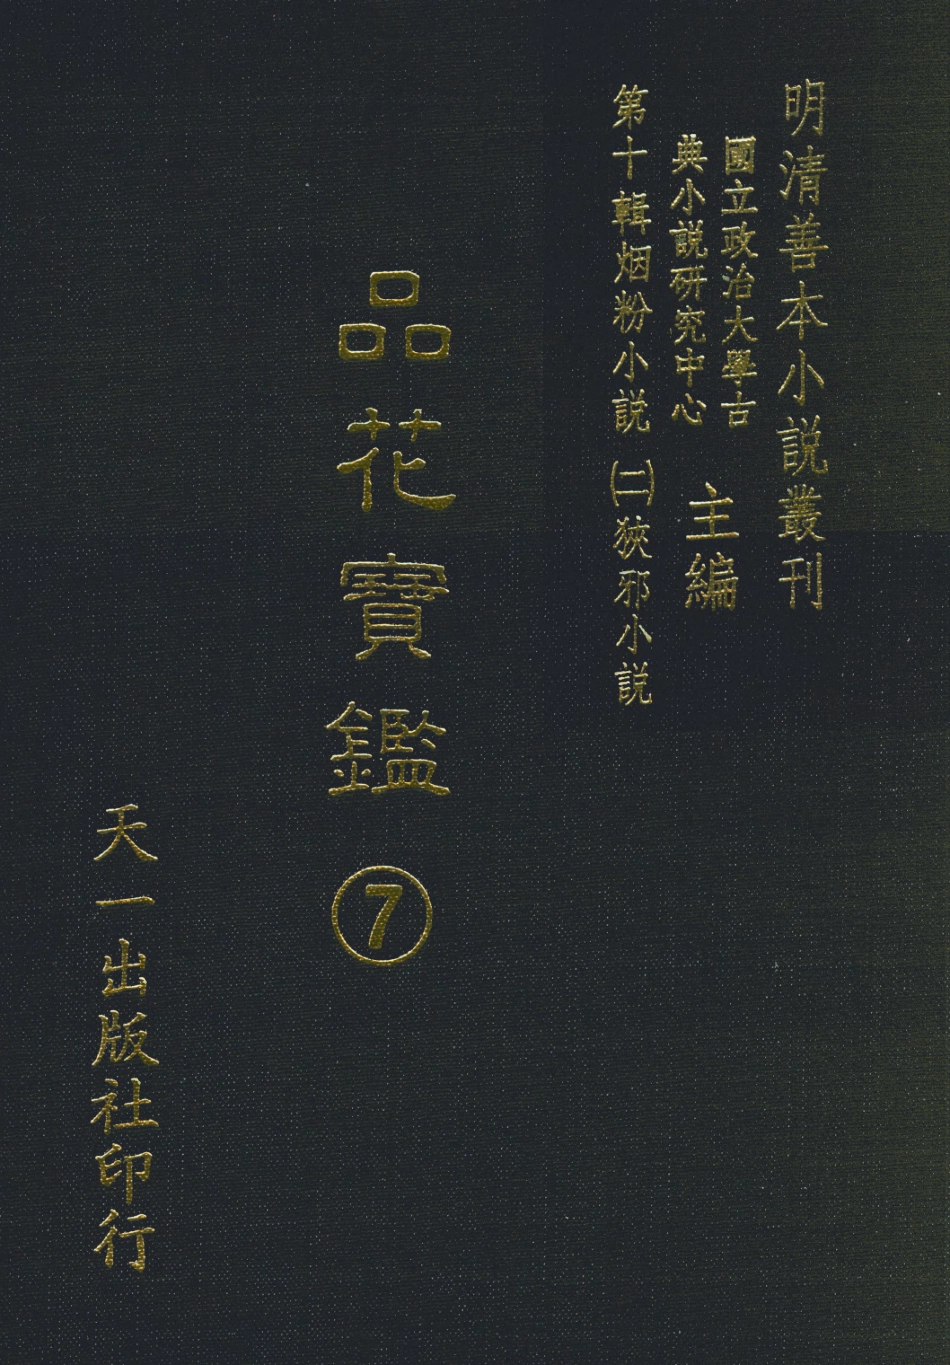 明清善本小説叢刊
國立政治大學古
典小説研究中心
主編
第十輯烟粉小説㈡狹邪小説
品花寶鑑⑦
天一出版社印行